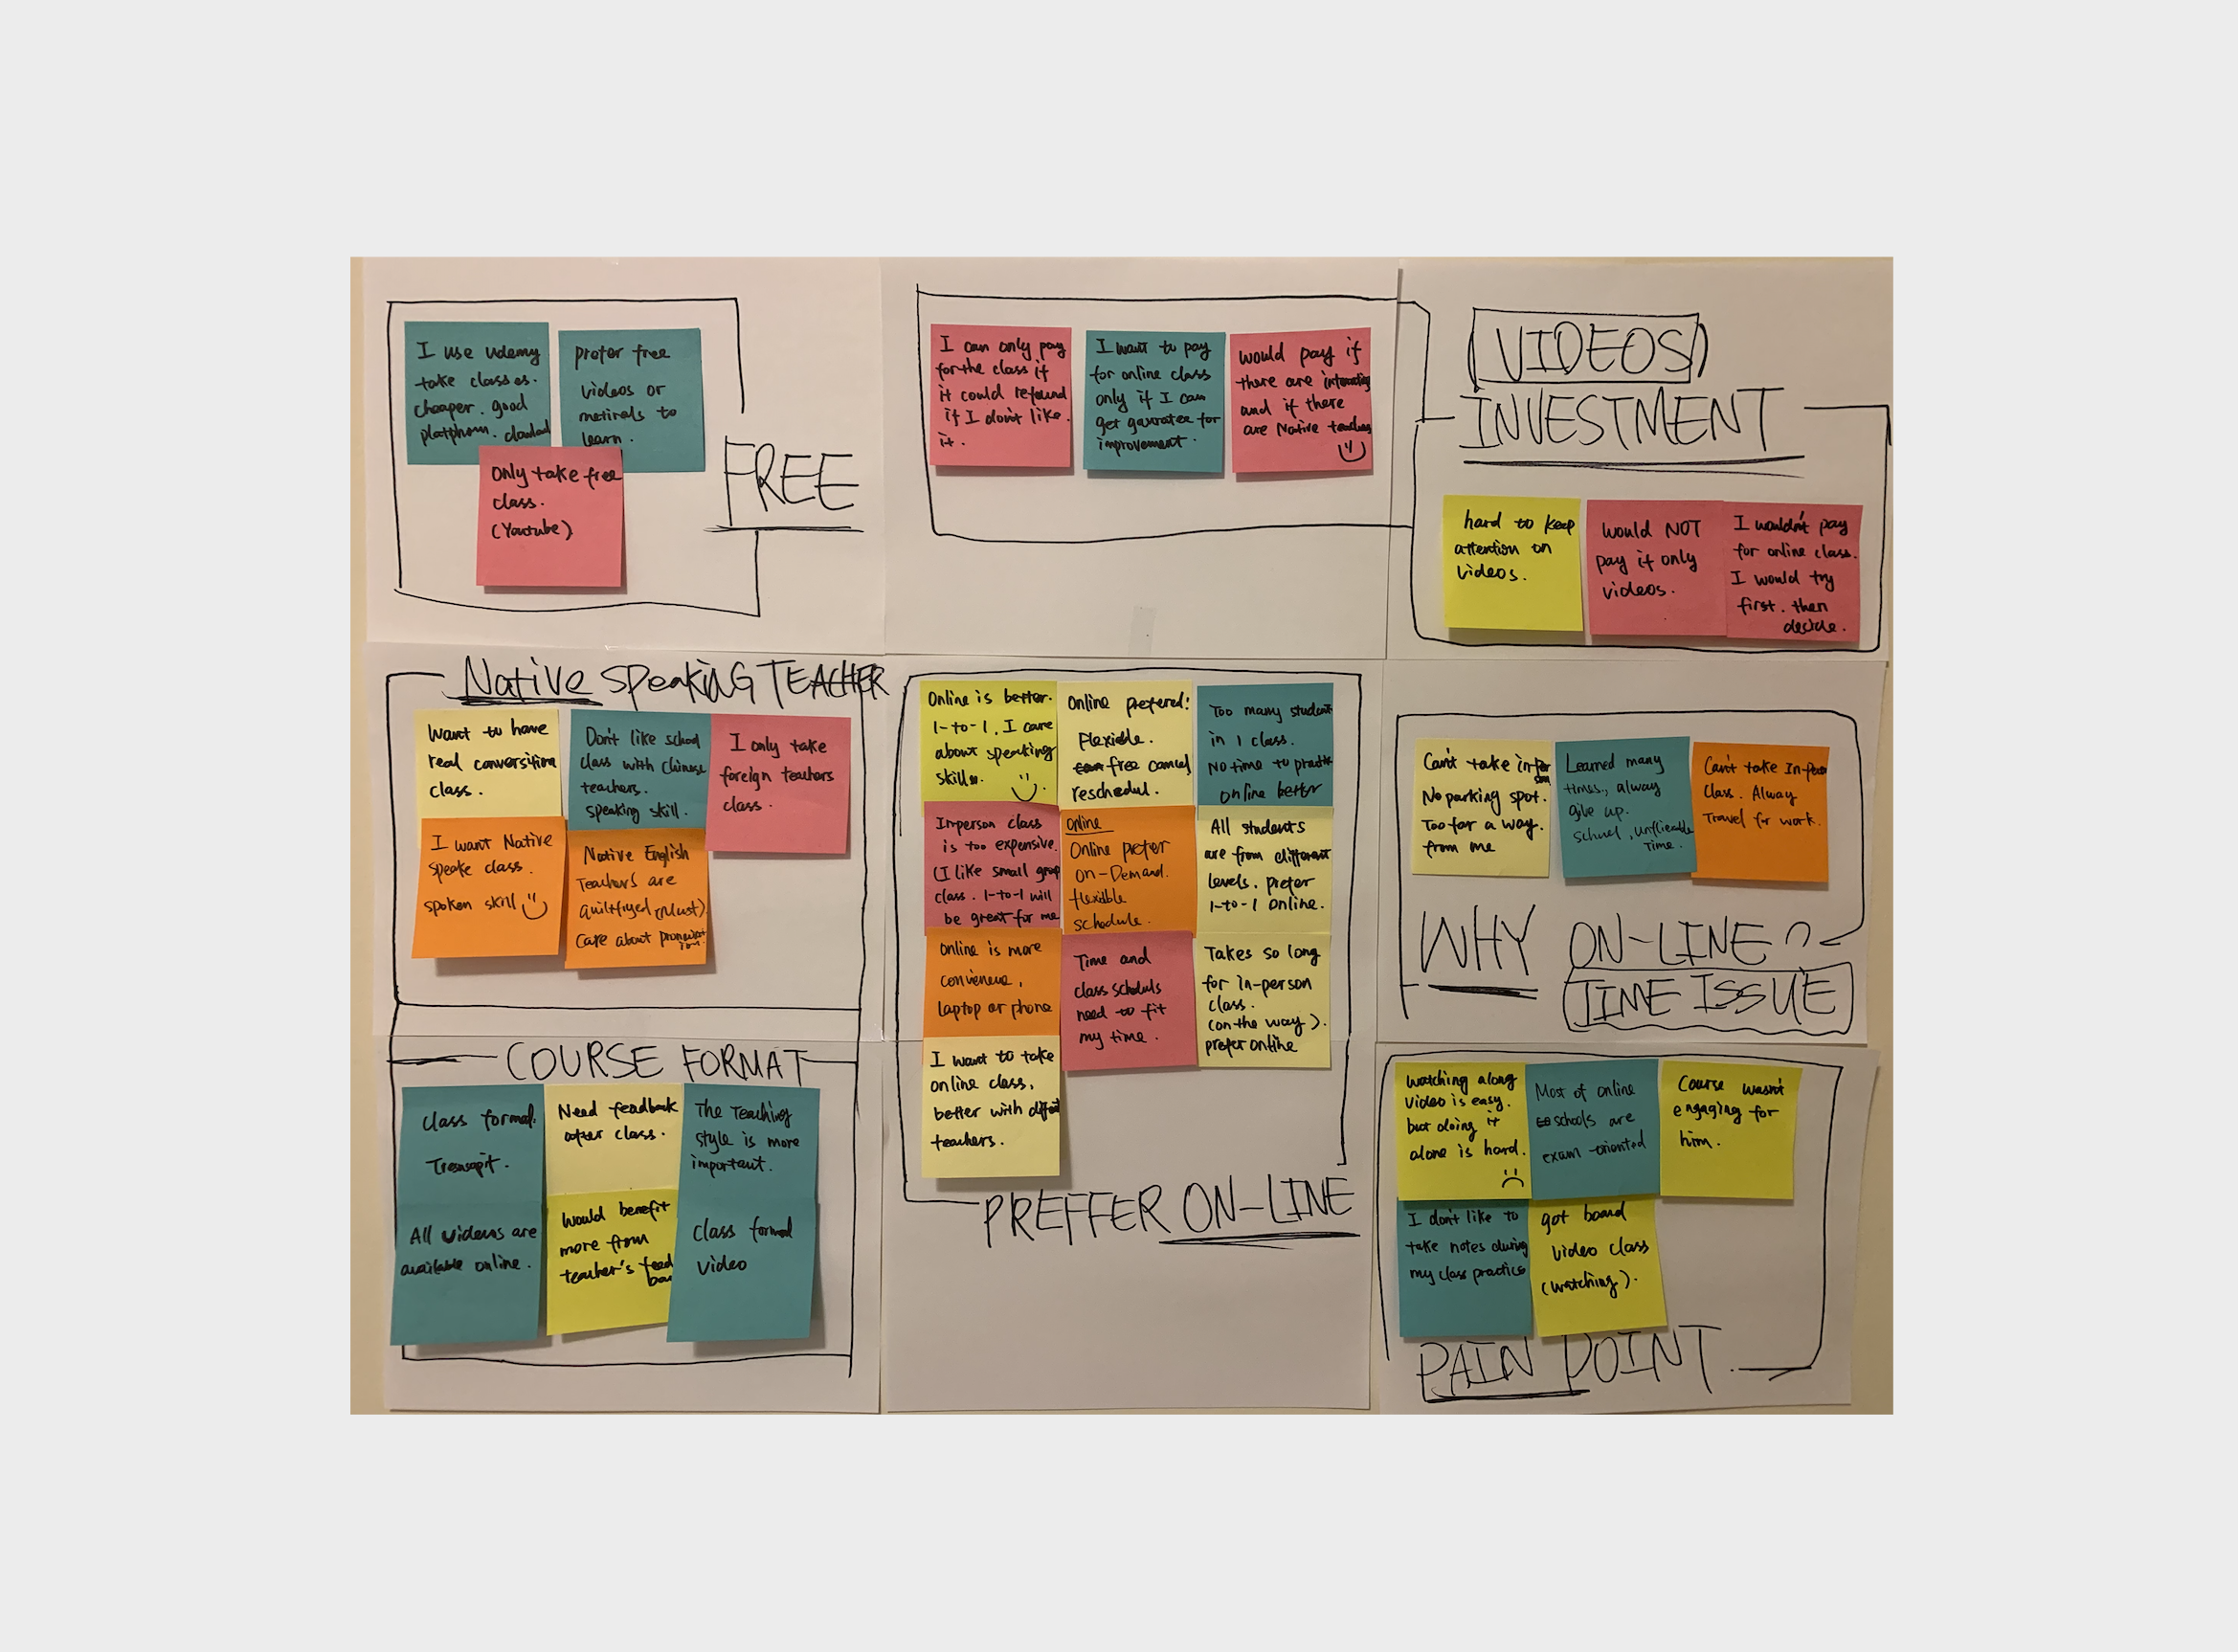 I use udemy
take classes.
cheaper. good
platphom.
prefer free
videos or
metirals to
learn.
Only take free
class.
(Youtube)
FREE
I can only pay
for the class if
it could refound
if I don't like
it.
I want to pay
for online class
only if I can
get gauratee for
improvement.
would pay if
there are
and if there
are Native
VIDEOS
INVESTMENT
hard to keep
attention on
videos.
would NOT
pay if only
videos.
I wouldn't pay
for online class.
I would try
first. then
decide.
Native SPEAKING TEACHER
Want to have
real conversition
class.
Don't like school
class with Chinese
teachers.
speaking skill.
I only take
foreign teachers
class.
I want Native
speake class.
spoken skill
Native English
Teachers are
(Must).
Care about
COURSE FORMAT
Class formal.
Need feedback
after class.
The Teaching
style is more
important.
All videos are
available online.
Would benefit
more from
teacher's
Class formal
video
Online is better.
1-to-1. I care
about speaking
skills.
Online prefered!
Flexible.
free cancel
reschedul.
Too many student
in 1 class.
No time to
online better
In-person class
is too expensive.
(I like small
class. 1-to-1 will
be great for me
Online
Online prefer
on-Demand.
flexible
schedule.
All students
are from different
levels. prefer
1-to-1 online.
Online is more
laptop or phone
Time and
class scheduls
need to fit
my time.
Takes so long
for in-person
class.
(on the way).
prefer online
I want to take
online class.
better with
teachers.
PREFFER ON-LINE
Can't take
No parking spot.
Too far a way.
from me
Learned many
times., alway
give up.
Time.
Can't take
class. Alway
Travel for work.
WHY ON-LINE?
TIME ISSUE
Watching along
video is easy.
but doing it
alone is hard.
Most of online
schools are
exam-oriented
Course wasn't
engaging for
him.
I don't like to
take notes during
my class practice
got board
video class
(watching).
PAIN POINT